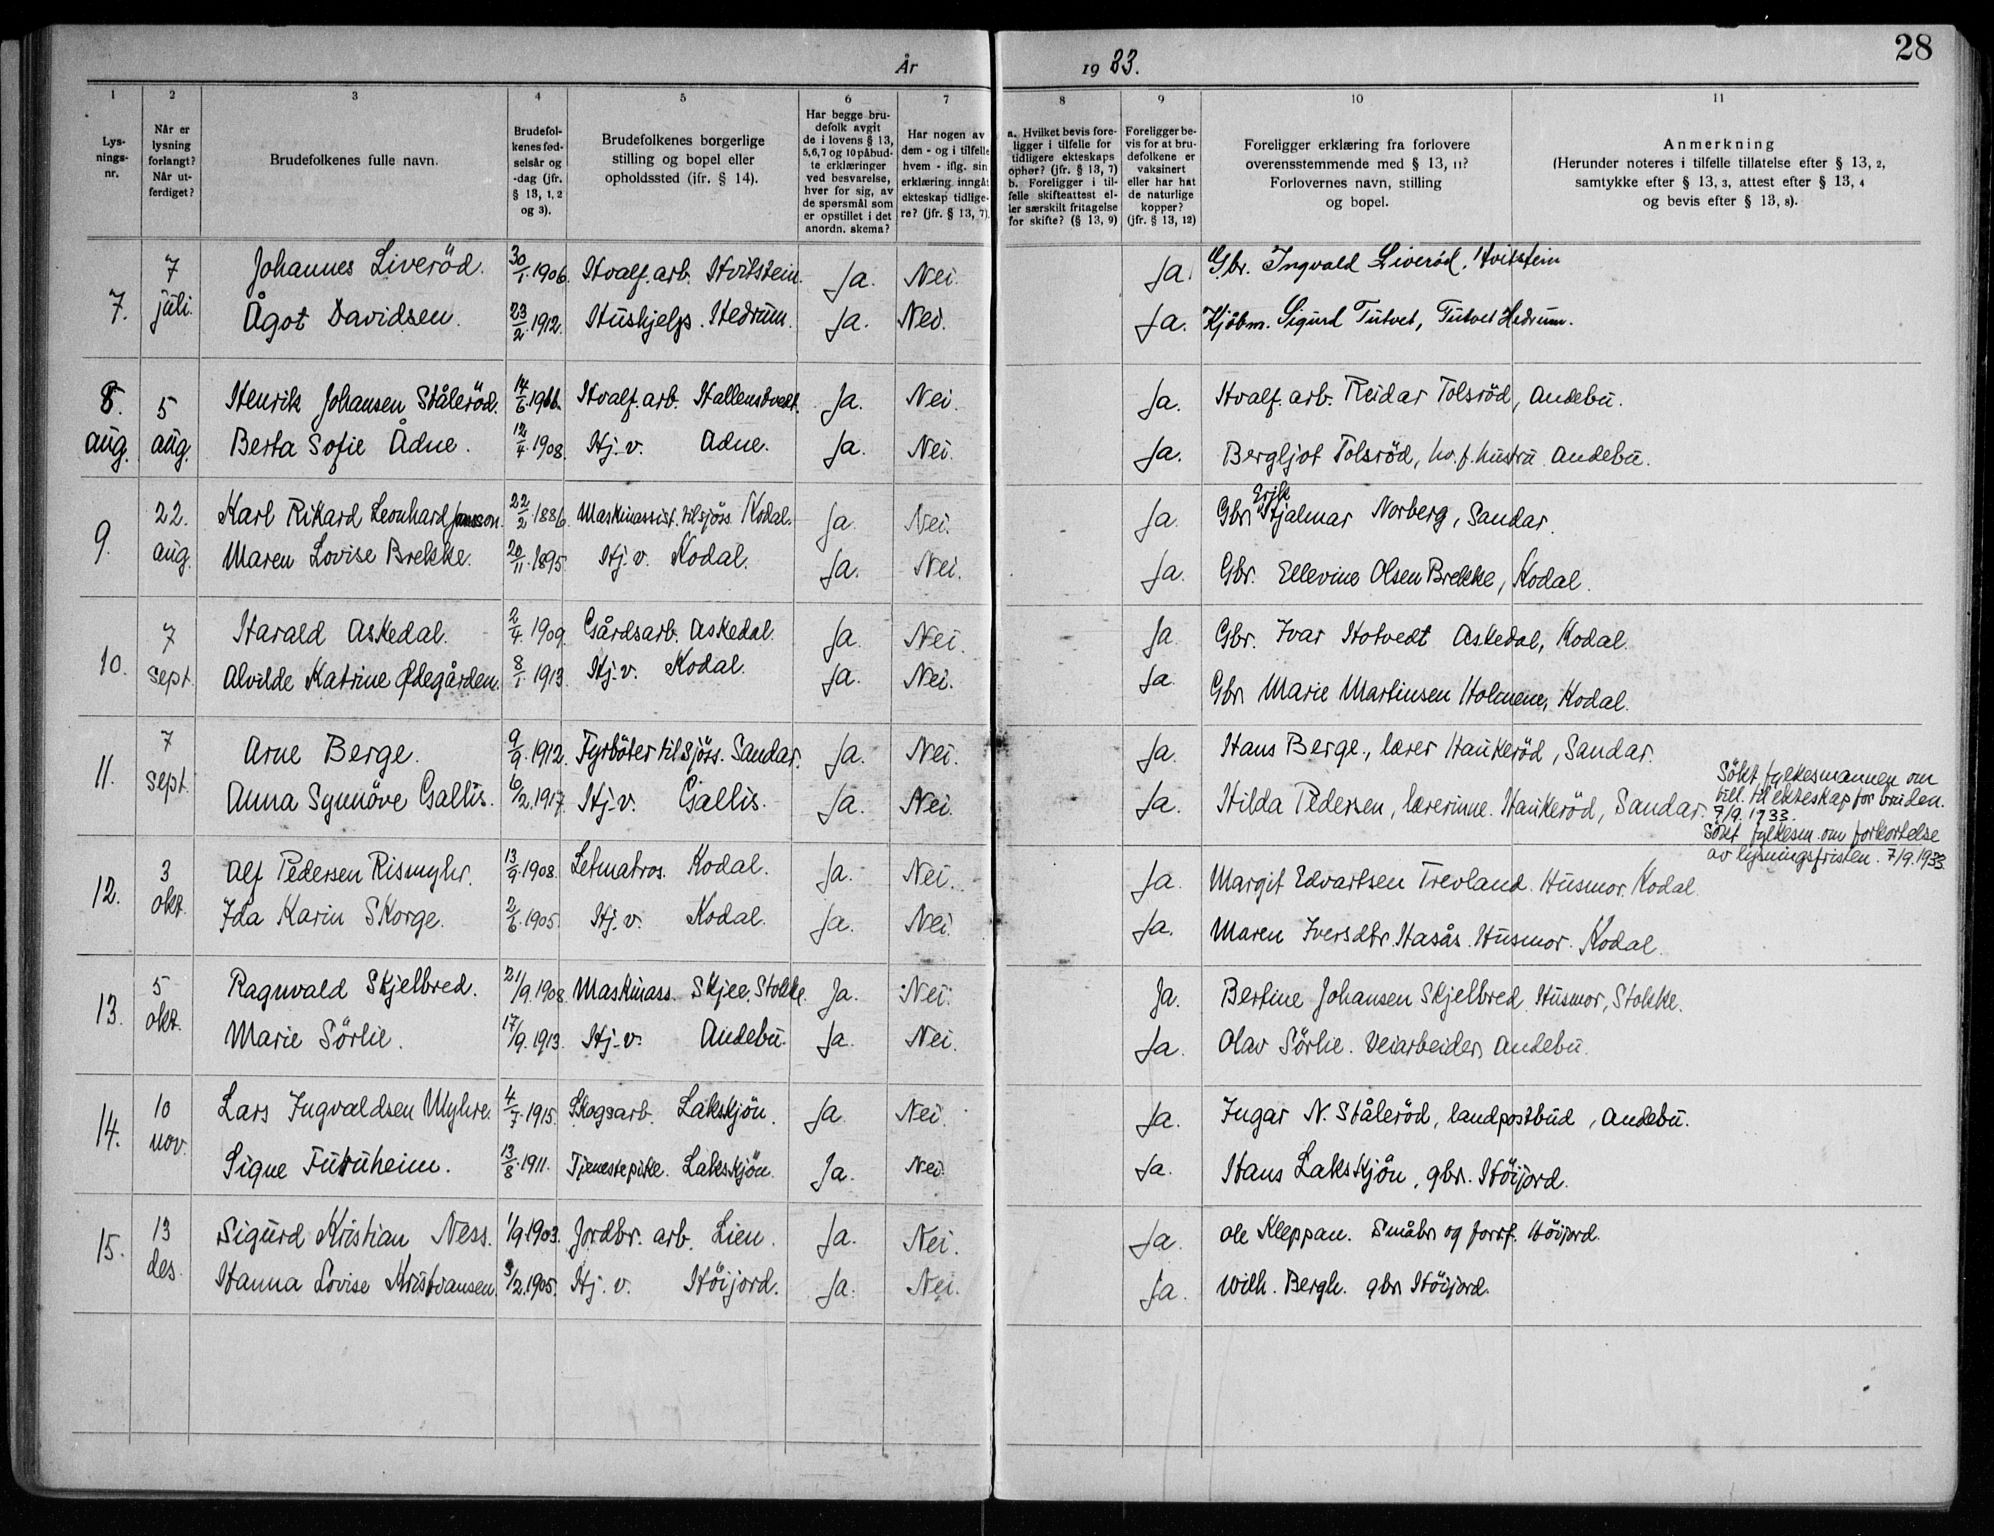 28
År 1933.
1 2 3 4 5 6 7 8 9 10 11
Lys-
nings-
nr.
Når er
lysning
forlangt?
Når ut-
ferdiget?
Brudefolkenes fulle navn.
Brudefol-
kenes fød-
selsår og
-dag (jfr.
§ 13, 1, 2
og 3).
Brudefolkenes borgerlige
stilling og bopel eller
opholdssted (ifr. § 14).
Har begge bru-
defolk avgit
de i lovens § 13,
5,6,7 og 10 påbud-
te erklæringer
ved besvarelse,
hver for sig, av
de spørsmål som
er opstillet i det
anordn. skema?
Har nogen av
dem - og i tilfelle
hvem - iflg. sin
erklæring inngåt
ekteskap tidlige-
re? (jfr. § 13, 7).
a. Hvilket bevis fore-
ligger i tilfelle for
tidligere ekteskaps
ophør? (jfr. § 13, 7)
b. Foreligger i til-
felle skifteattest el-
ler særskilt fritagelse
for skifte? (§ 13, 9)
Foreligger be-
vis for at bru-
defolkene er
vaksinert
eller har hat
de naturlige
kopper?
(jfr. § 13, 12)
Foreligger erklæring fra forlovere
overensstemmende med § 13, 11?
Forlovernes navn, stilling
og bopel.
Anmerkning
(Herunder noteres i tilfelle tillatelse efter § 13, 2,
samtykke efter § 13, 3, attest efter § 13, 4
og bevis efter § 13, 8).
7. 7 juli. Johannes Liveröd. 30/1.1906. Hvalf. arb. Hvitstein. Ja. Nei. Ja. Gbr. Ingvald Liveröd, Hvitstein
Ågot Davidsen. 23/2 1912. Hushjelp. Hedrum. Ja. Nei. Ja. Kjöbm. Sigurd Tutvet, Tutvet Hedrum.
8. aug. 5 aug. Henrik Johansen Ståleröd. 14/6. Hvalf. arb. Ja. Nei. Ja. Hvalf. arb. Reidar Tolsröd, Andebu.
Berta Sofie Ådne. 12/4.1908. Hj. v. Ådne. Ja. Nei. Ja. Bergljot Tolsröd, hv.f. hustru Andebu.
9. 22. aug. Karl Rikard Leonhard Jansson. 22/2 1886. Maskinassist. tilsjös. Kodal. Ja. Nei. Ja. Gbr. Erik Hjalmar Norberg, Sandar.
Maren Lovise Brekke. 20/11.1895. Hj. v. Kodal. Ja. Nei. Ja. Gbr. Ellevine Olsen Brekke, Kodal.
10. 7 sept. Harald Askedal. 2/4. 1909. Gårdsarb. Askedal. Ja. Nei. Ja. Gbr. Ivar Hotvedt Askedal, Kodal.
Alvilde Katrine Ødegården. 8/1. 1913. Hj. v. Kodal. Ja. Nei. Ja. Gbr. Marie Martinsen Holmene, Kodal.
11. 7 sept. Arne Berge. 9/9.1912. Fyrböter til sjös. Sandar. Ja. Nei. Ja. Hans Berge, lærer Haukeröd, Sandar.
Anna Synnöve Gallis. 6/2.1917. Hj. v. Gallis. Ja. Nei. Ja. Hilda Pedersen, lærerinne. Haukeröd, Sandar.
Sökt fylkesmannen om
till. til ekteskap for bruden.
7/9. 1933.
Sökt fylkesm. om forkortelse
av lysningsfristen. 7/9.1933.
12. 3 okt. Alf Pedersen Rismyhr. 13/9.1908. Letmatros. Kodal. Ja. Nei. Ja. Margit Edvartsen Trevland. Husmor. Kodal
Ida Karin Skorge. 2/6.1905. Hj. v. Kodal. Ja. Nei. Ja. Maren Iversdtr. Hasås. Husmor. Kodal.
13. 5 okt. Ragnvald Skjelbred. 21/9.1908. Maskinass. Skjee, Stokke. Ja. Nei. Ja. Bertine Johansen Skjelbred. Husmor, Stokke.
Marie Sörlie. 17/9.1913. Hj. v. Andebu. Ja. Nei. Ja. Olav Sörlie. Veiarbeider. Andebu.
14. 10 nov. Lars Ingvaldsen Myhre. 4/7.1915. Skogsarb. Lakskjön. Ja. Nei. Ja. Ingar N. Ståleröd, landpostbud, Andebu.
Signe 13/8.1911. Tjenestepike. Lakskjön. Ja. Nei. Ja. Hans Lakskjön, gbr. Höijord.
15. 13 des. Sigurd Kristian Ness. 1/9.1903. Jordbr. arb. Lien. Ja. Nei. Ja. Ole Kleppan. Småbr. og forrf. Höijord.
Hanna Lovise Kristiansen. 3/2.1905. Hj. v. Höijord. Ja. Nei. Ja. Wilh. Bergh. gbr. Höijord.